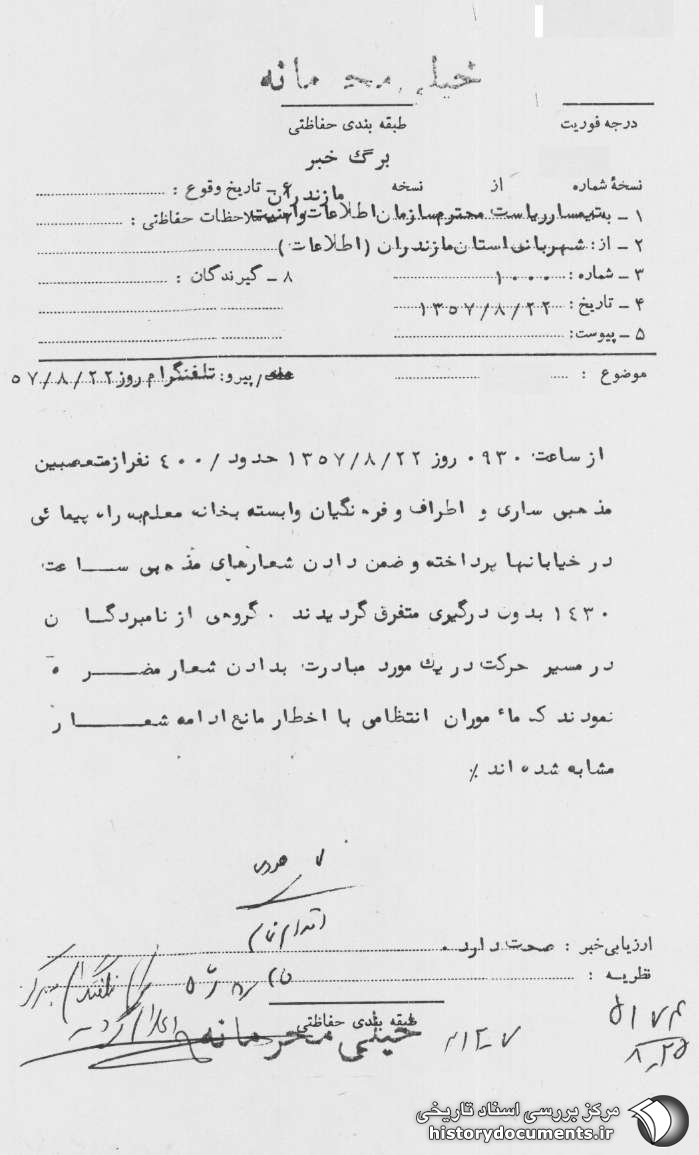 خیلی محرمانه
درجه فوریت
طبقه بندی حفاظتی
برگ خبر
نسخهٔ شماره از نسخه ۶ ـ تاریخ وقوع :
مازندران
۱ ـ به تیمسار ریاست محترم سازمان اطلاعات و امنیت ملاحظات حفاظتی :
۲ ـ از : شهربانی استان مازندران (اطلاعات)
۳ ـ شماره : ۱۰۰۰ ۸ ـ گیرندگان :
۴ ـ تاریخ : ۱۳۵۷/۸/۲۲
۵ ـ پیوست:
موضوع : /پیرو: تلفنگرام روز ۵۷/۸/۲۲
از ساعت ۰۹۳۰ روز ۱۳۵۷/۸/۲۲ حدود /۴۰۰ نفر از متعصبین
مذهبی ساری و اطراف و فرهنگیان وابسته بخانه معلم به راه پیمائی
در خیابانها پرداخته و ضمن دادن شعارهای مذهبی ساعت
۱۴۳۰ بدون درگیری متفرق گردیدند . گروهی از نامبردگان
در مسیر حرکت در یک مورد مبادرت بدادن شعار مضره
نمودند که مأموران انتظامی با اخطار مانع ادامه شعار
مشابه شده اند ٪
اقدام تمام
ارزیابی خبر : صحت دارد .
نظریه :
طبقه بندی حفاظتی
خیلی محرمانه
۵۱۷۴
۸٫۲۵
مرکز بررسی اسناد تاریخی
historydocuments.ir